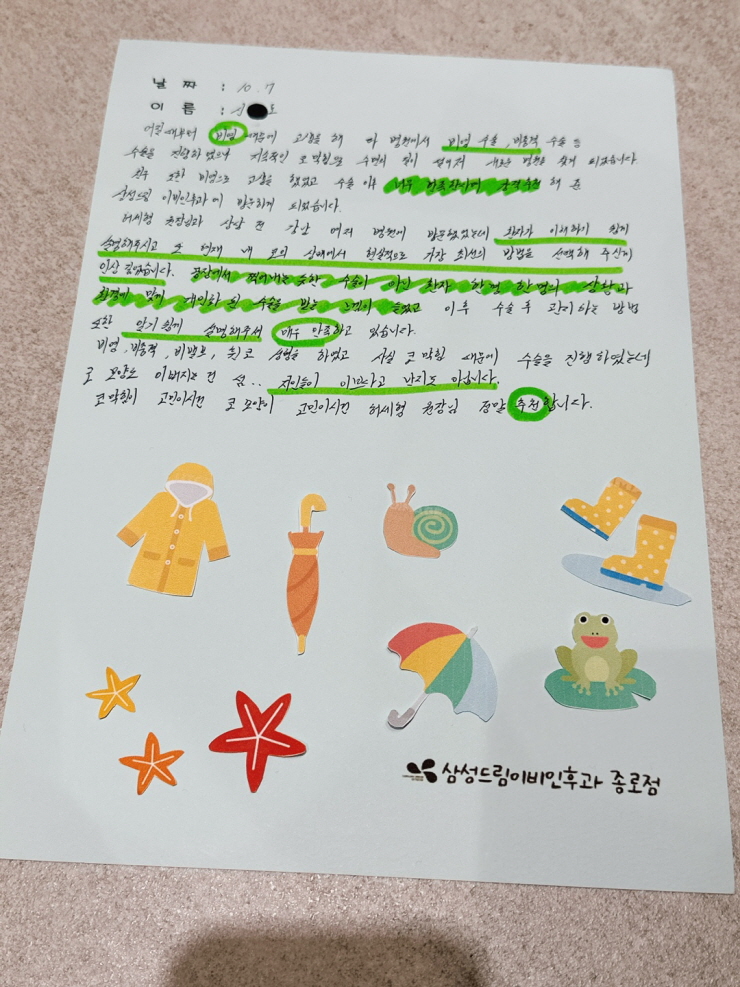 날 짜 : 10.7
이 름 : 서 도
어릴때부터 비염 때문에 고생을 해 타 병원에서 비염 수술, 비중격 수술 등
수술을 진행하였으나 지속적인 코막힘으로 수면의 질이 떨어져 새로운 병원을 찾게 되었습니다
친구 또한 비염으로 고생을 했었고 수술 이후 너무 만족한다며 적극추천 해 준
삼성드림 이비인후과에 방문하게 되었습니다.
허세형 원장님과 상담 전 강남 여러 병원에 방문했었는데 환자가 이해하기 쉽게
설명해주시고 또 현재 내 코의 상태에서 현실적으로 가장 최선의 방법을 선택해 주신게
인상 깊었습니다. 공장에서 찍어내는 듯한 수술이 아닌 환자 한명 한명의 상황과
환경에 맞게 개인화 된 수술을 받는 느낌이 들었고 이후 수술 후 관리하는 방법
또한 알기쉽게 설명해주셔서 매우 만족하고 있습니다.
비염, 비중격, 비밸브, 휜코 성형을 하였고 사실 코막힘 때문에 수술을 진행하였는데
코 모양도 이뻐지는 건 덤.. 지인들이 이쁘다고 난리도 아닙니다.
코막힘이 고민이시면 코 모양이 고민이시면 허세형 원장님 정말 추천합니다.
삼성드림이비인후과 종로점